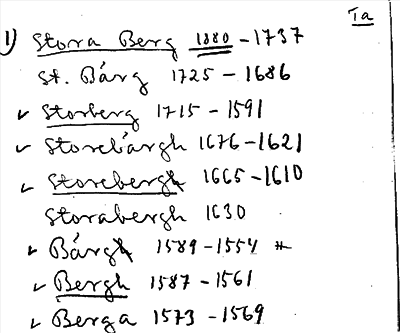 Ia
1) Stora Berg 1880 - 1737
St. Bärg 1725 - 1686
v Storberg 1715 - 1591
v Storebärgh 1676 - 1621
v Storebergh 1665 - 1610
Storabergh 1630
v Bärgh 1589 - 1554 #
v Bergh 1587 - 1561
v Berga 1573 - 1569